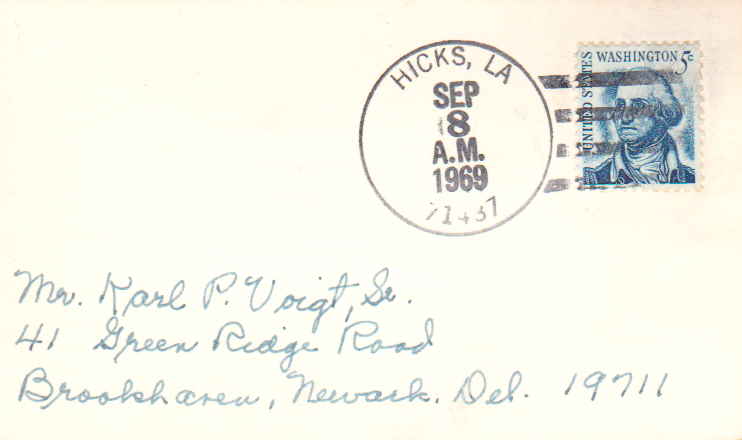 HICKS, LA
SEP
8
A.M.
1969
71437
UNITED STATES
WASHINGTON 5c
Mr. Karl P. Voigt, Sr.
41 Green Ridge Road
Brookhaven, Newark. Del. 19711